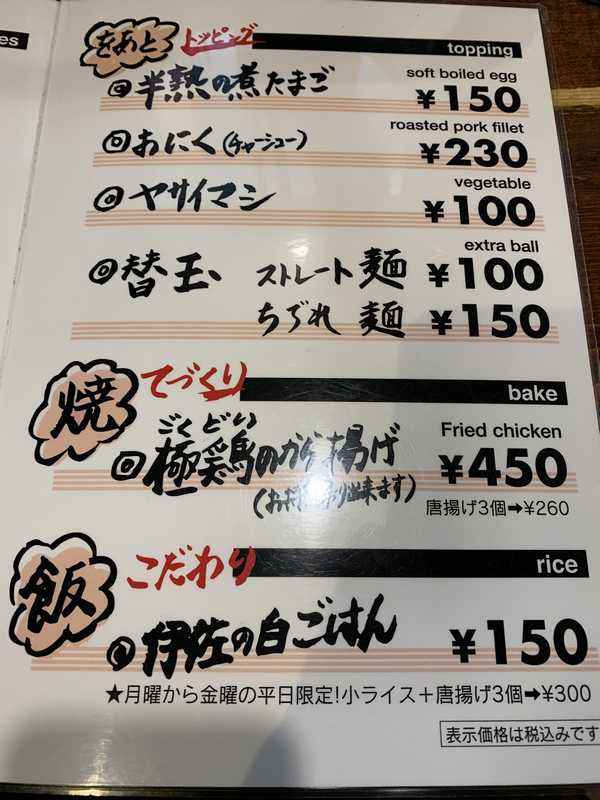 es
をあと トッピング topping
soft boiled egg
半熟の煮たまご ¥150
roasted pork fillet
おにく(チャーシュー) ¥230
vegetable
ヤサイマシ ¥100
extra ball
替玉 ストレート麺 ¥100
ちぢれ麺 ¥150
焼 てづくり bake
ごくどり Fried chicken
極鶏のから揚げ ¥450
(お持ち帰り出来ます) 唐揚げ3個➡¥260
飯 こだわり rice
伊佐の白ごはん ¥150
★月曜から金曜の平日限定!小ライス+唐揚げ3個➡¥300
表示価格は税込みです